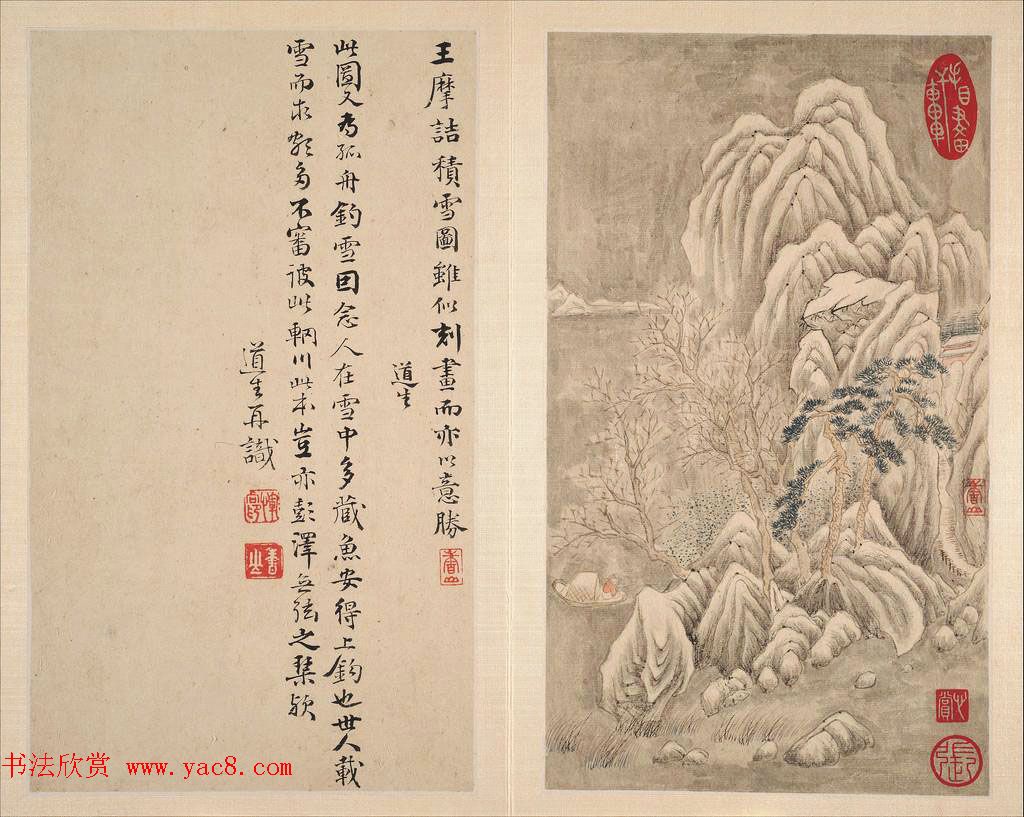 王摩詰積雪圖雖似刻畫而亦以意勝
道生
此圖又為孤舟釣雪因念人在雪中多藏魚安得上鈎也世人載
雪而求船多不審彼此輞川此本豈亦彭澤無弦之琴歟
道生再識
香山
香山
心賞
張
书法欣赏 www.yac8.com